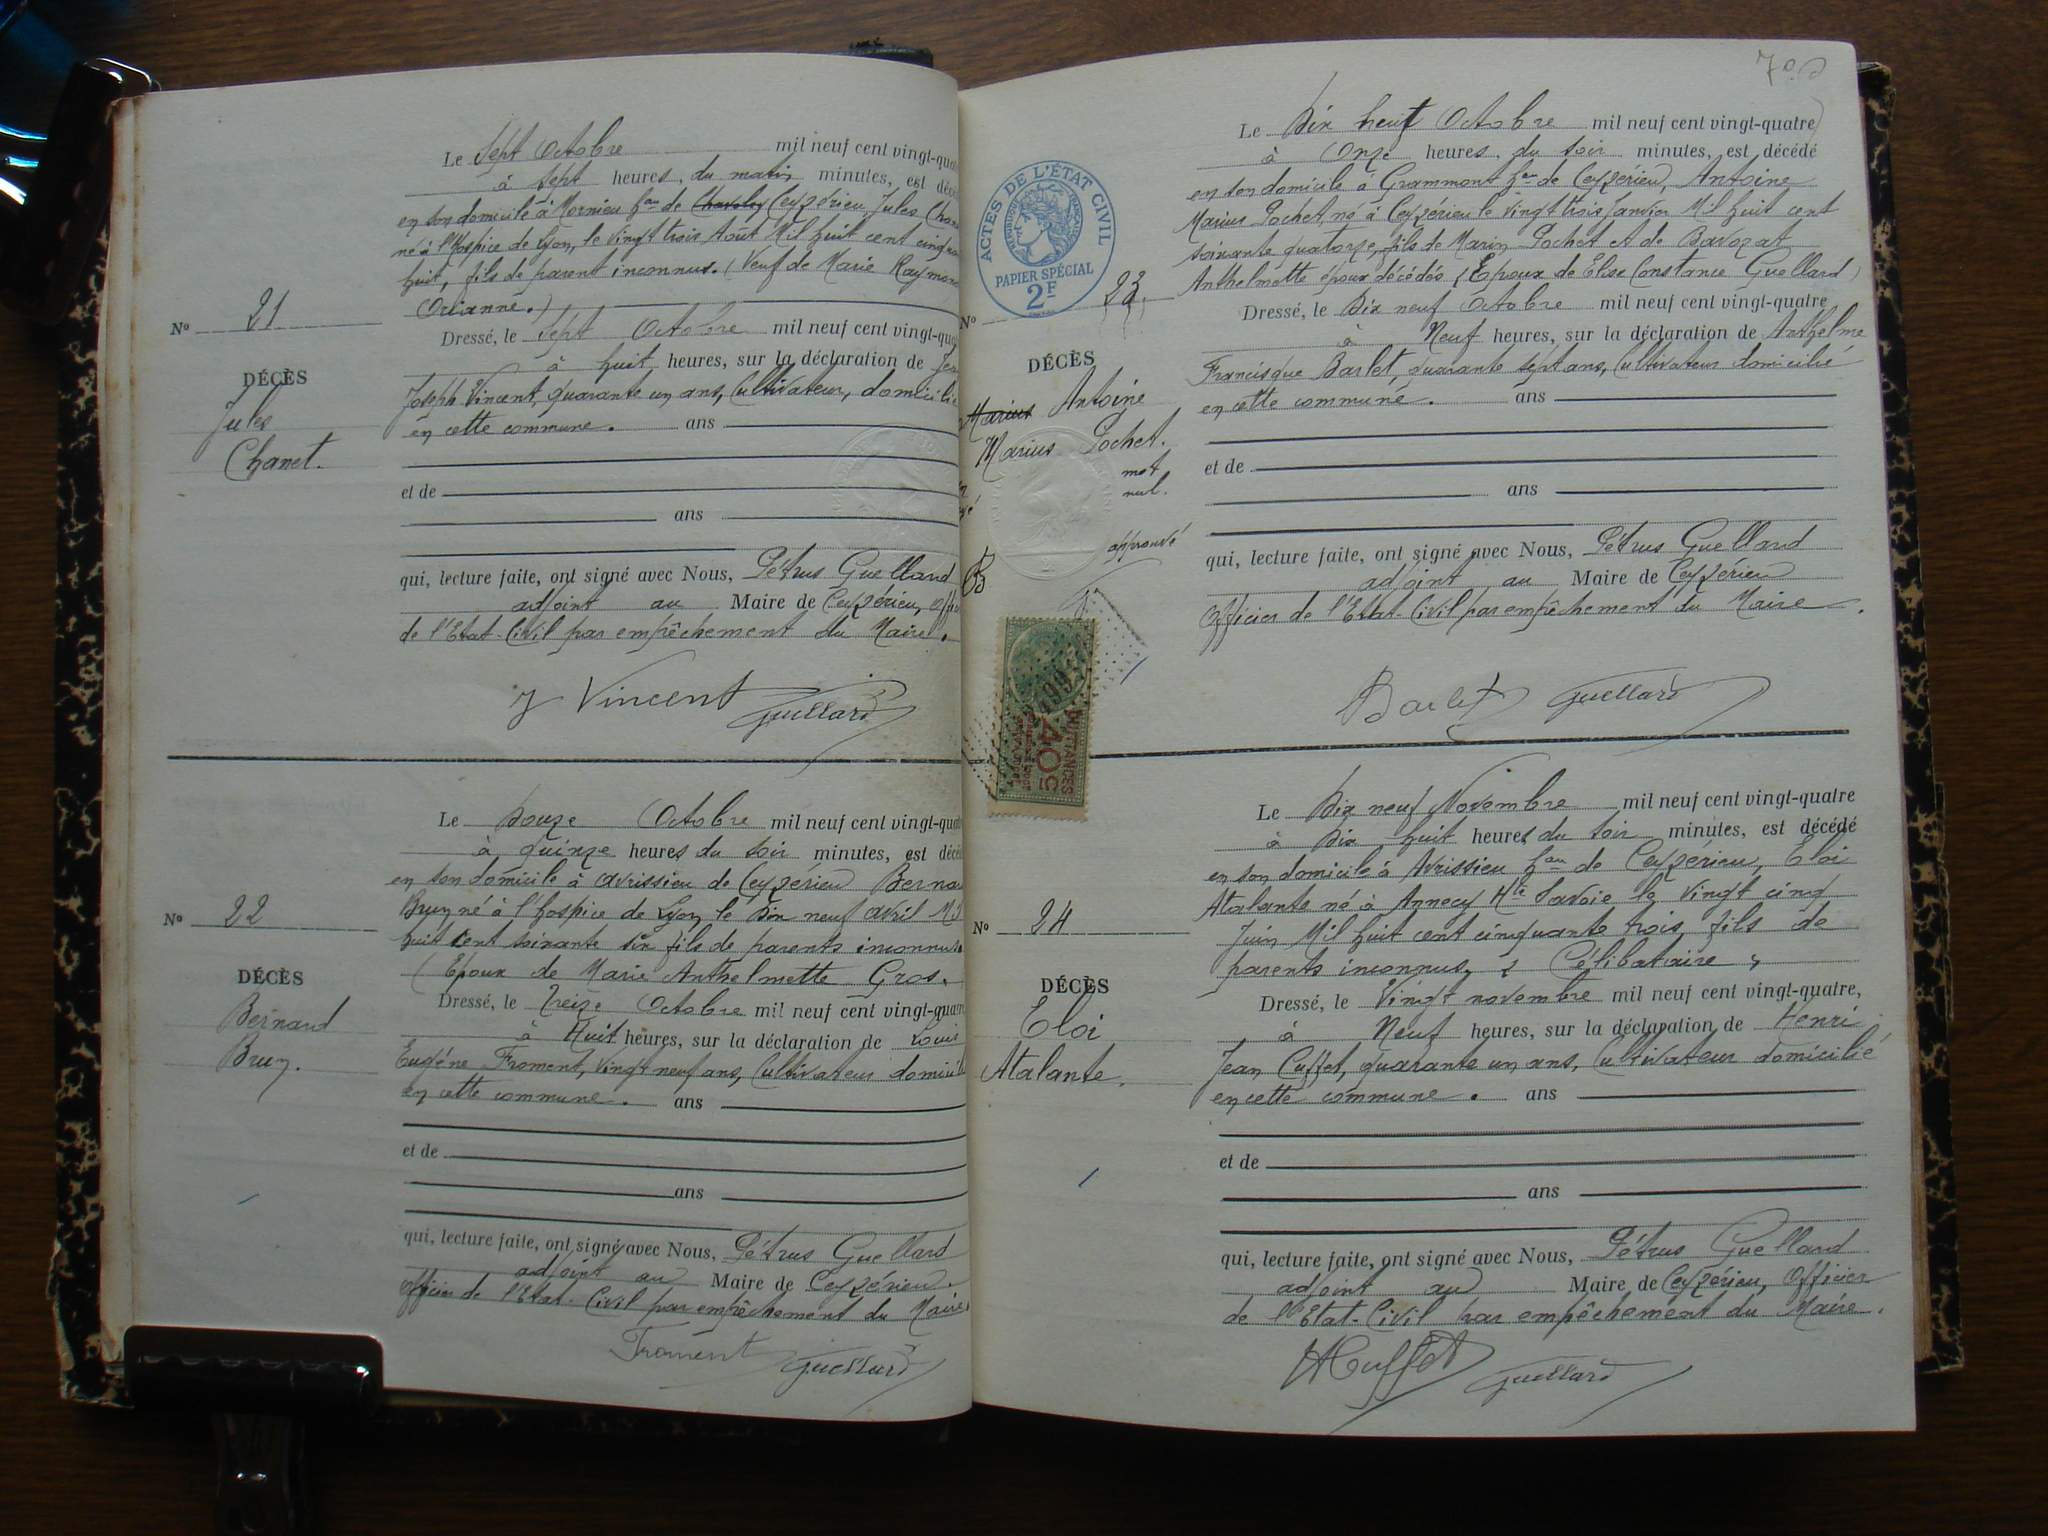 Le Sept Octobre mil neuf cent vingt-qua
à sept heures, du matin minutes, est décé
en son domicile à Mornieu hau de Chavoley Ceyzérieu, Jules Chane
né à l'hospice de Lyon, le vingt trois Août Mil huit cent cinqua
huit, fils de parent inconnus. (Veuf de Marie Raymon
Orianne.)
N° 21
Dressé, le sept Octobre mil neuf cent vingt-qua
à huit heures, sur la déclaration de Jea
DÉCÈS
Jules
Chanet.
Joseph Vincent, quarante un ans, Cultivateur, domicilié
en cette commune. ans
et de
ans
qui, lecture faite, ont signé avec Nous, Pétrus Guellard
adjoint au Maire de Ceyzérieu, offi
de l'Etat-Civil par empêchement du Maire.
J Vincent Guellard
Le Douze Octobre mil neuf cent vingt-quat
à quinze heures du soir minutes, est décé
en son domicile à avrissieu de Ceyzérieu Berna
N° 22
Brun né à l'hospice de Lyon, le Dix neuf avril Mil
huit cent soixante six fils de parents inconnus
(Epoux de Marie Anthelmette Gros.
DÉCÈS
Bernard
Brun.
Dressé, le Treize Octobre mil neuf cent vingt-quatr
à Huit heures, sur la déclaration de Louis
Eugène Froment, Vingt neuf ans, Cultivateur domicil
en cette commune. ans
et de
ans
qui, lecture faite, ont signé avec Nous, Pétrus Guellard
adjoint au Maire de Ceyzérieu.
officier de l'Etat-Civil par empêchement du Maire.
Froment Guellard
ACTES DE L'ÉTAT CIVIL
RÉPUBLIQUE FRANÇAISE
PAPIER SPÉCIAL
2F
Le Dix huit Octobre mil neuf cent vingt-quatre
à Onze heures, du soir minutes, est décédé
en son domicile à Grammont hau de Ceyzerieu, Antoine
Marius Pochet, né à Ceyzerieu le vingt trois Janvier Mil huit cent
soixante quatorze, fils de Marin Pochet et de Bavozat
Anthelmette époux décédés (Époux de Elise Constance Guellard)
N° 23.
Dressé, le Dix neuf Octobre mil neuf cent vingt-quatre
à Neuf heures, sur la déclaration de Anthelme
DÉCÈS
Marius Antoine
Marius Pochet.
mot
nul.
approuvé
Francisque Barlet, quarante sept ans, Cultivateur domicilié
en cette commune. ans
et de
ans
qui, lecture faite, ont signé avec Nous, Pétrus Guellard
adjoint au Maire de Ceyzerieu
Officier de l'Etat-Civil par empêchement du Maire.
Barlet Guellard
QUITTANCES
40c
Le Dix neuf Novembre mil neuf cent vingt-quatre
à Dix huit heures du soir minutes, est décédé
en son domicile à Avrissieu hau de Ceyzérieu, Eloi
Atalante né à Annecy Hte Savoie le vingt cinq
N° 24
Juin Mil huit cent cinquante trois, fils de
parents inconnus, Célibataire
DÉCÈS
Eloi
Atalante.
Dressé, le Vingt novembre mil neuf cent vingt-quatre,
à Neuf heures, sur la déclaration de Henri
Jean Cuffet, quarante un ans, Cultivateur domicilié
en cette commune. ans
et de
ans
qui, lecture faite, ont signé avec Nous, Pétrus Guellard
adjoint au Maire de Ceyzérieu, Officier
de l'Etat-Civil par empêchement du Maire.
HCuffet Guellard